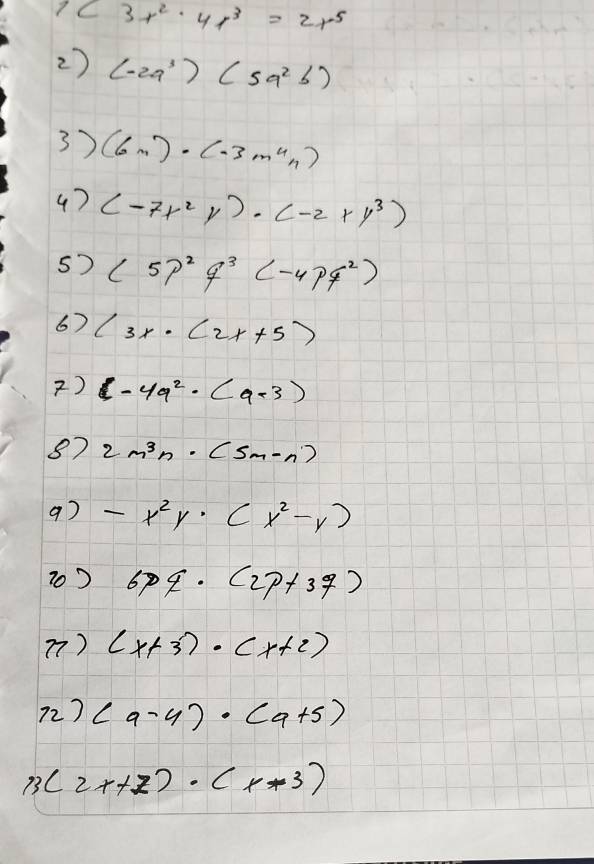 1( 3x² · 4x³ = 2x⁵
2) (-2a³) (5a²b)
3) (6m) · (-3m⁴n)
4) (-7x²y) · (-2xy³)
5) ( 5p²q³ (-4pq²)
6) ( 3x · (2x+5)
7) (-4a² · (a-3)
8) 2m³n · (5m-n)
9) - x²y · (x²-y)
10) 6pq · (2p+3q)
11) (x+3) · (x+2)
12) (a-4) · (a+5)
13( 2x+7) · (x-3)